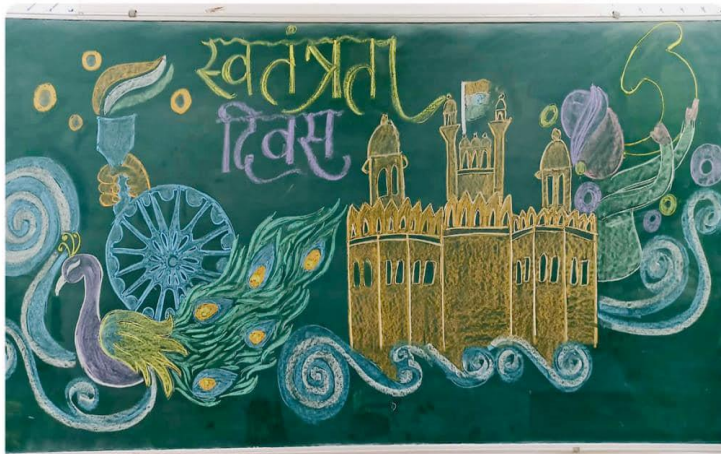 स्वतंत्रता
दिवस